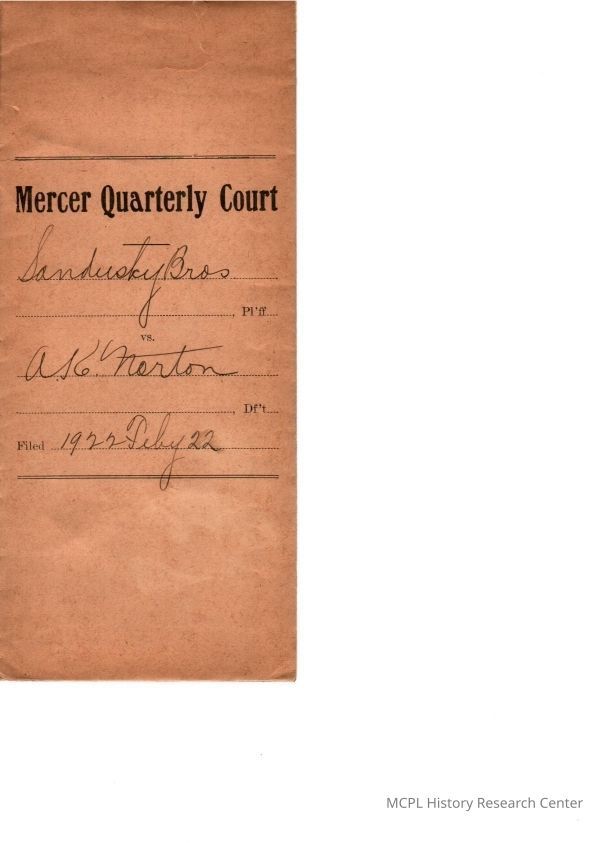 Mercer Quarterly Court
Sandusky Bros
, Pl'ff
vs.
A.K. Norton
, Df't
Filed 1922 Feby 22
MCPL History Research Center